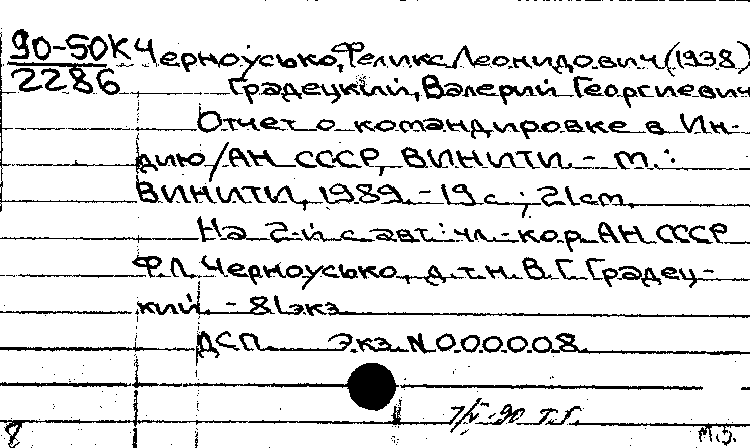 90-50К Черноусько, Феликс Леонидович (1938)
2286 Градецкий, Валерий Георгиевич
Отчет о командировке в Ин-
дию / АН СССР, ВИНИТИ. - М.:
ВИНИТИ, 1989. - 19 с ; 21 см.
На 2-й с авт.: чл.-кор. АН СССР
Ф.Л. Черноусько, д.т.н. В.Г. Градец-
кий. - 81 экз
ДСП. Экз. N 000008.
7/V-90 Т.Г.
8 М.З.